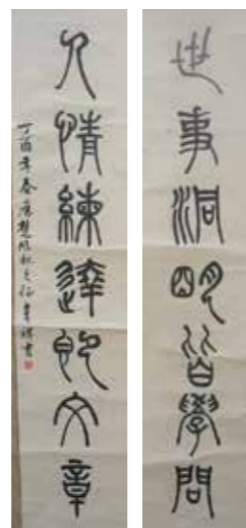 世事洞明皆學問
人情練達即文章
丁酉年春
書